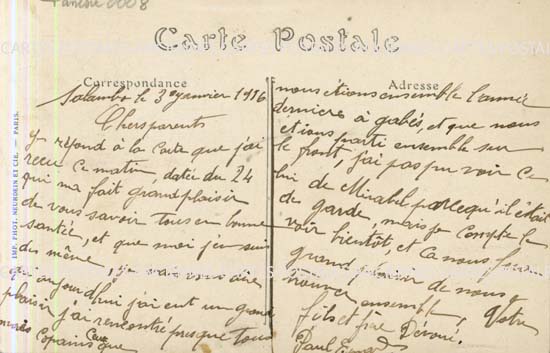 Tunisie 0008
Carte Postale
Correspondance
Adresse
IMP. PHOT. NEURDEIN ET CIE. — PARIS.
Salambo le 3 Janvier 1916
Chers parents
y répond à la Carte que j'ai
recue ce matin, datée du 24
qui ma fait grand plaisir
de vous savoir tous en bonne
santée, et que moi j'en suis
du même,
qu'aujourd'hui j'ai eut un grand
plaisir j'ai rencontré presque tous
Copains que
nous étions ensemble l'année
dernière à gabés, et que nous
étions parti ensemble sur
le front, j'ai pas pu voir ce
lui de Mirabel parce qu'il était
de garde, mais je compte le
voir bientôt et Ca nous
grand plaisir de nous
trouver ensemble, Votre
fils et fère Dévoué.
Paul